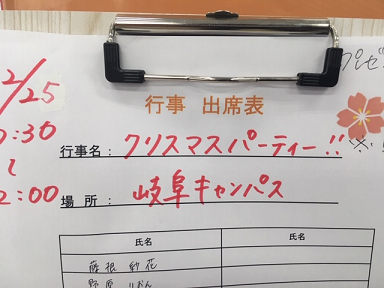 プレゼ
行事 出席表
2/25
行事名： クリスマスパーティー!!
:30
場　所： 岐阜キャンパス
2:00
氏名 氏名
藤根 紗花
野原 りおん